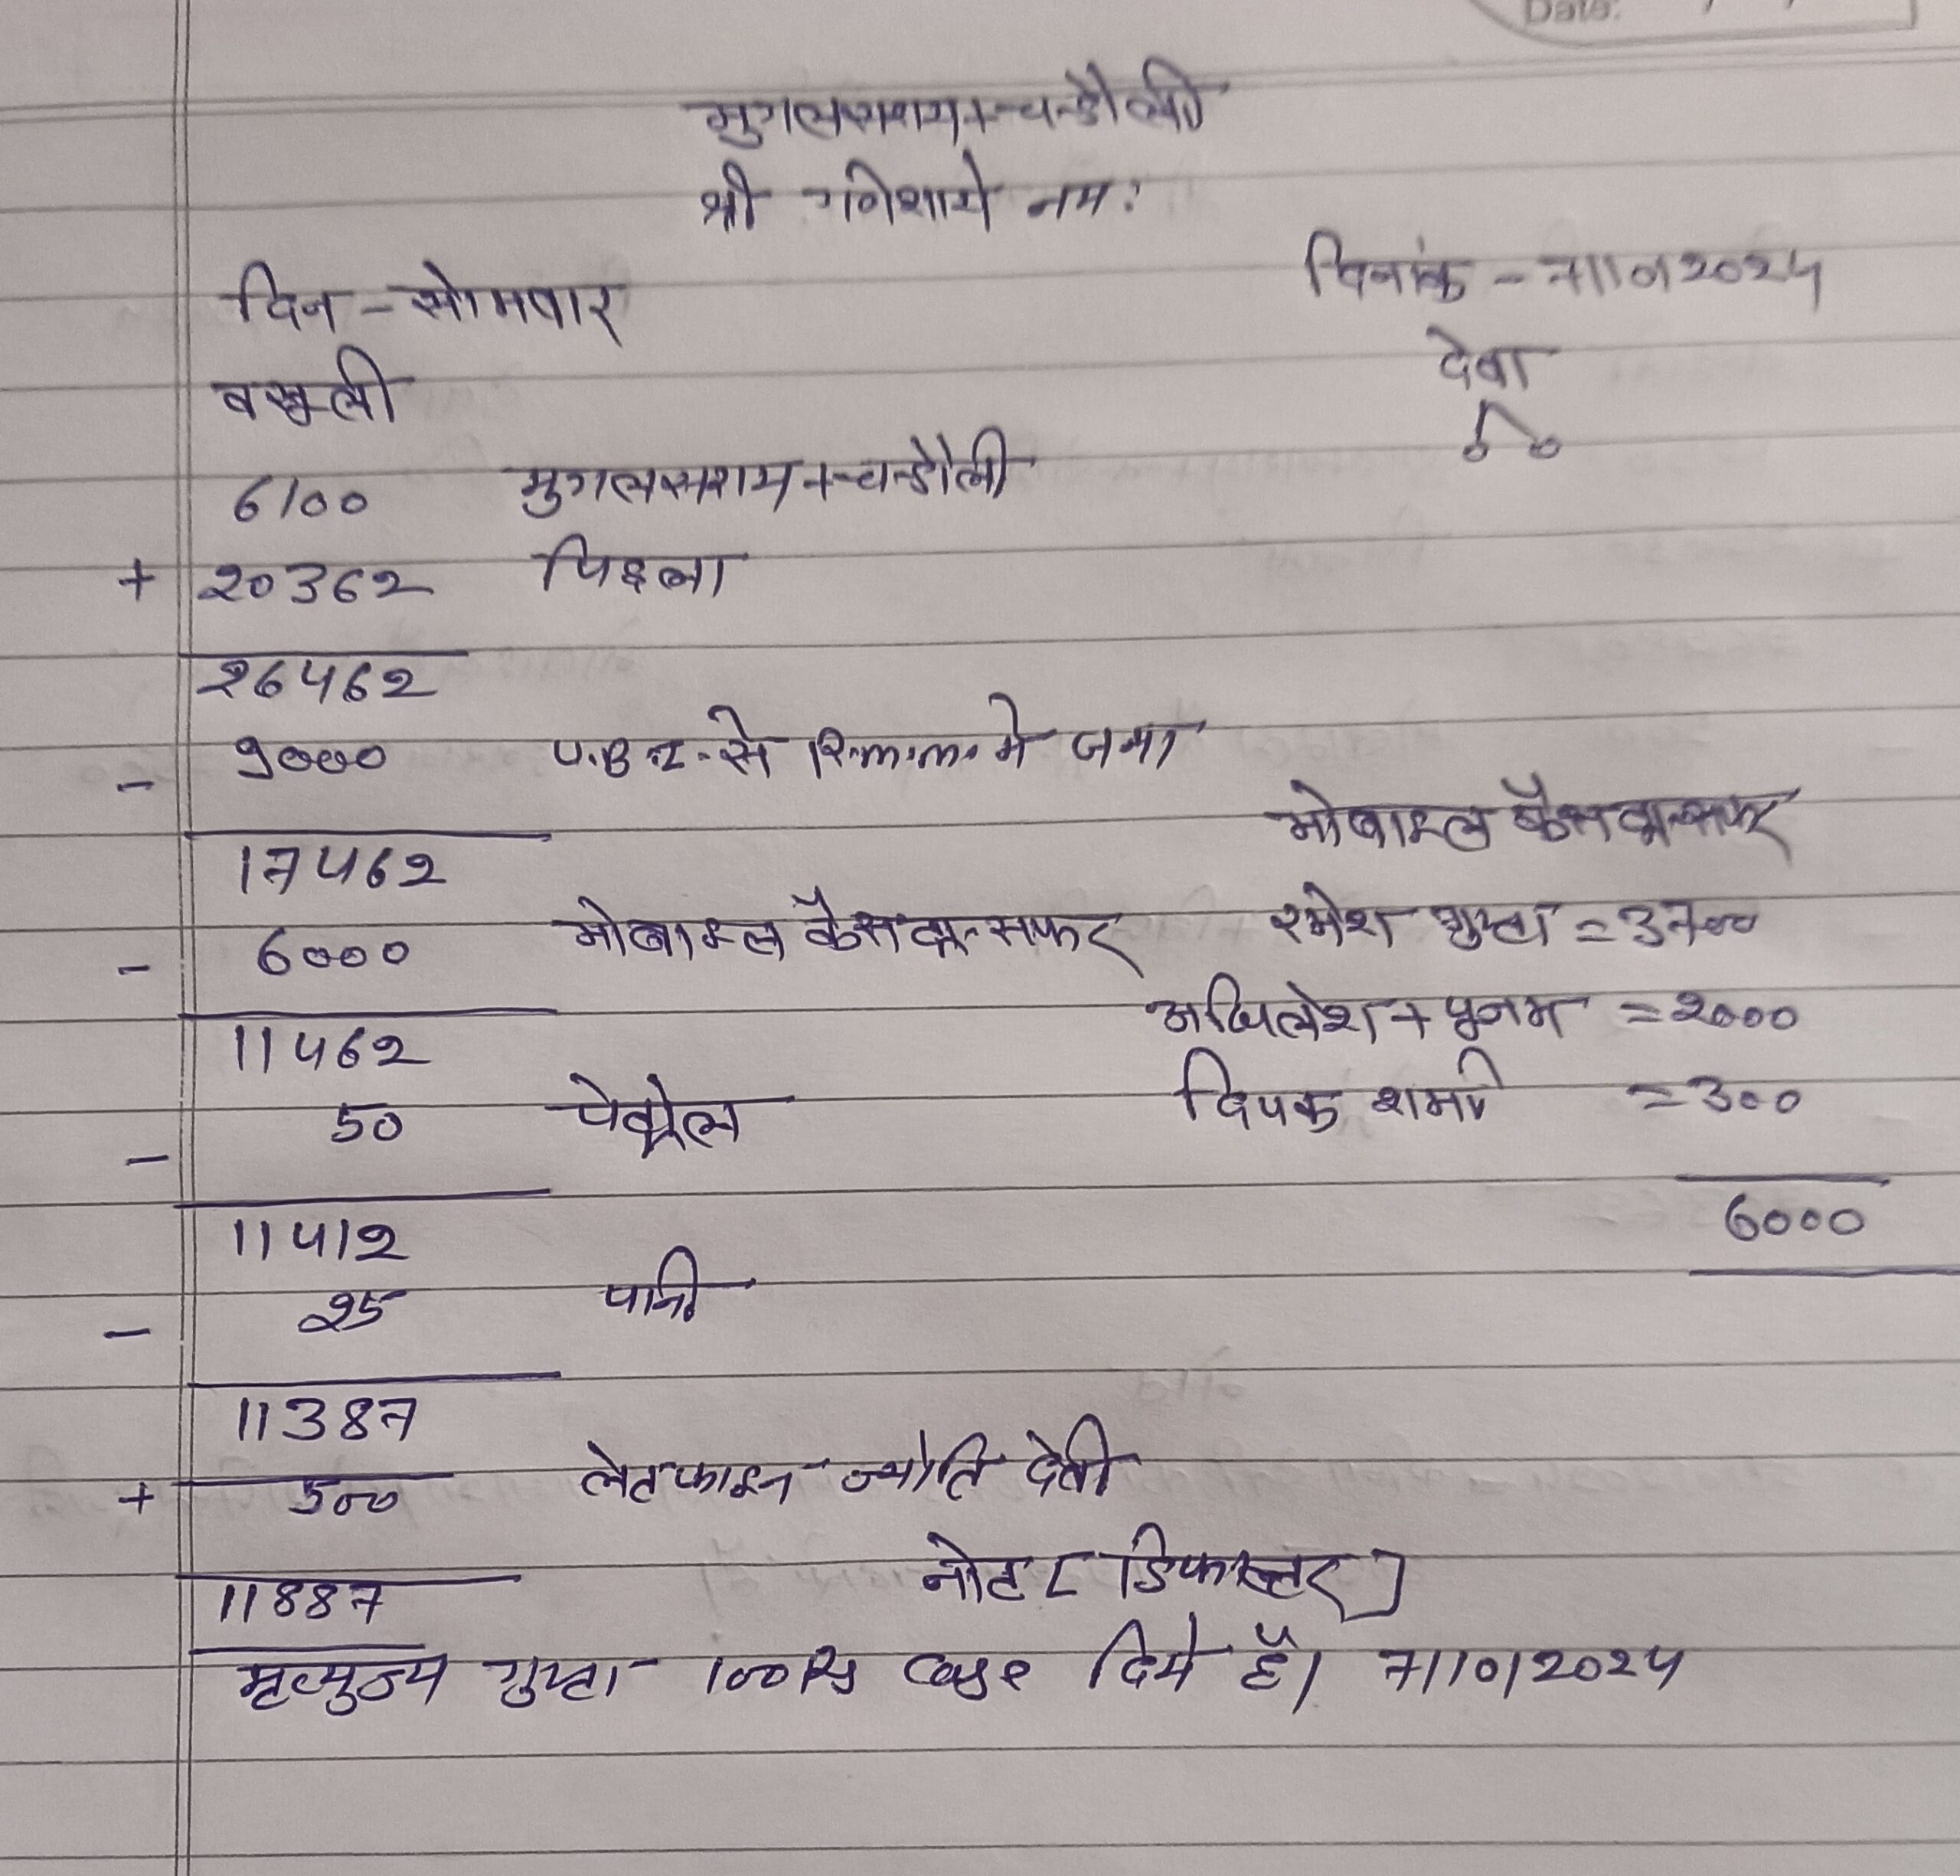 Date: / /
मुगलसराय+चन्डौली
श्री गणेशाये नमः
दिन - सोमवार
दिनांक - 7/10/2024
वसूली
देवा
6100 मुगलसराय+चन्डौली
+ 20362 पिछ्ला
26462
- 9000 U.B.I. से R.m.m. मे जमा
17462
मोबाइल कैस ट्रान्सफर
- 6000 मोबाइल कैस ट्रान्सफर रमेश गुप्ता = 3700
11462
अखिलेश + पूनम = 2000
- 50 पेट्रोल
दिपक शर्मा = 300
11412
6000
- 25 पानी
11387
+ 500 लेटफाइन ज्योति देवी
नोट [डिफाल्टर]
11887
मृत्युन्जय गुप्ता 100 Rs दिये हैं। 7/10/2024